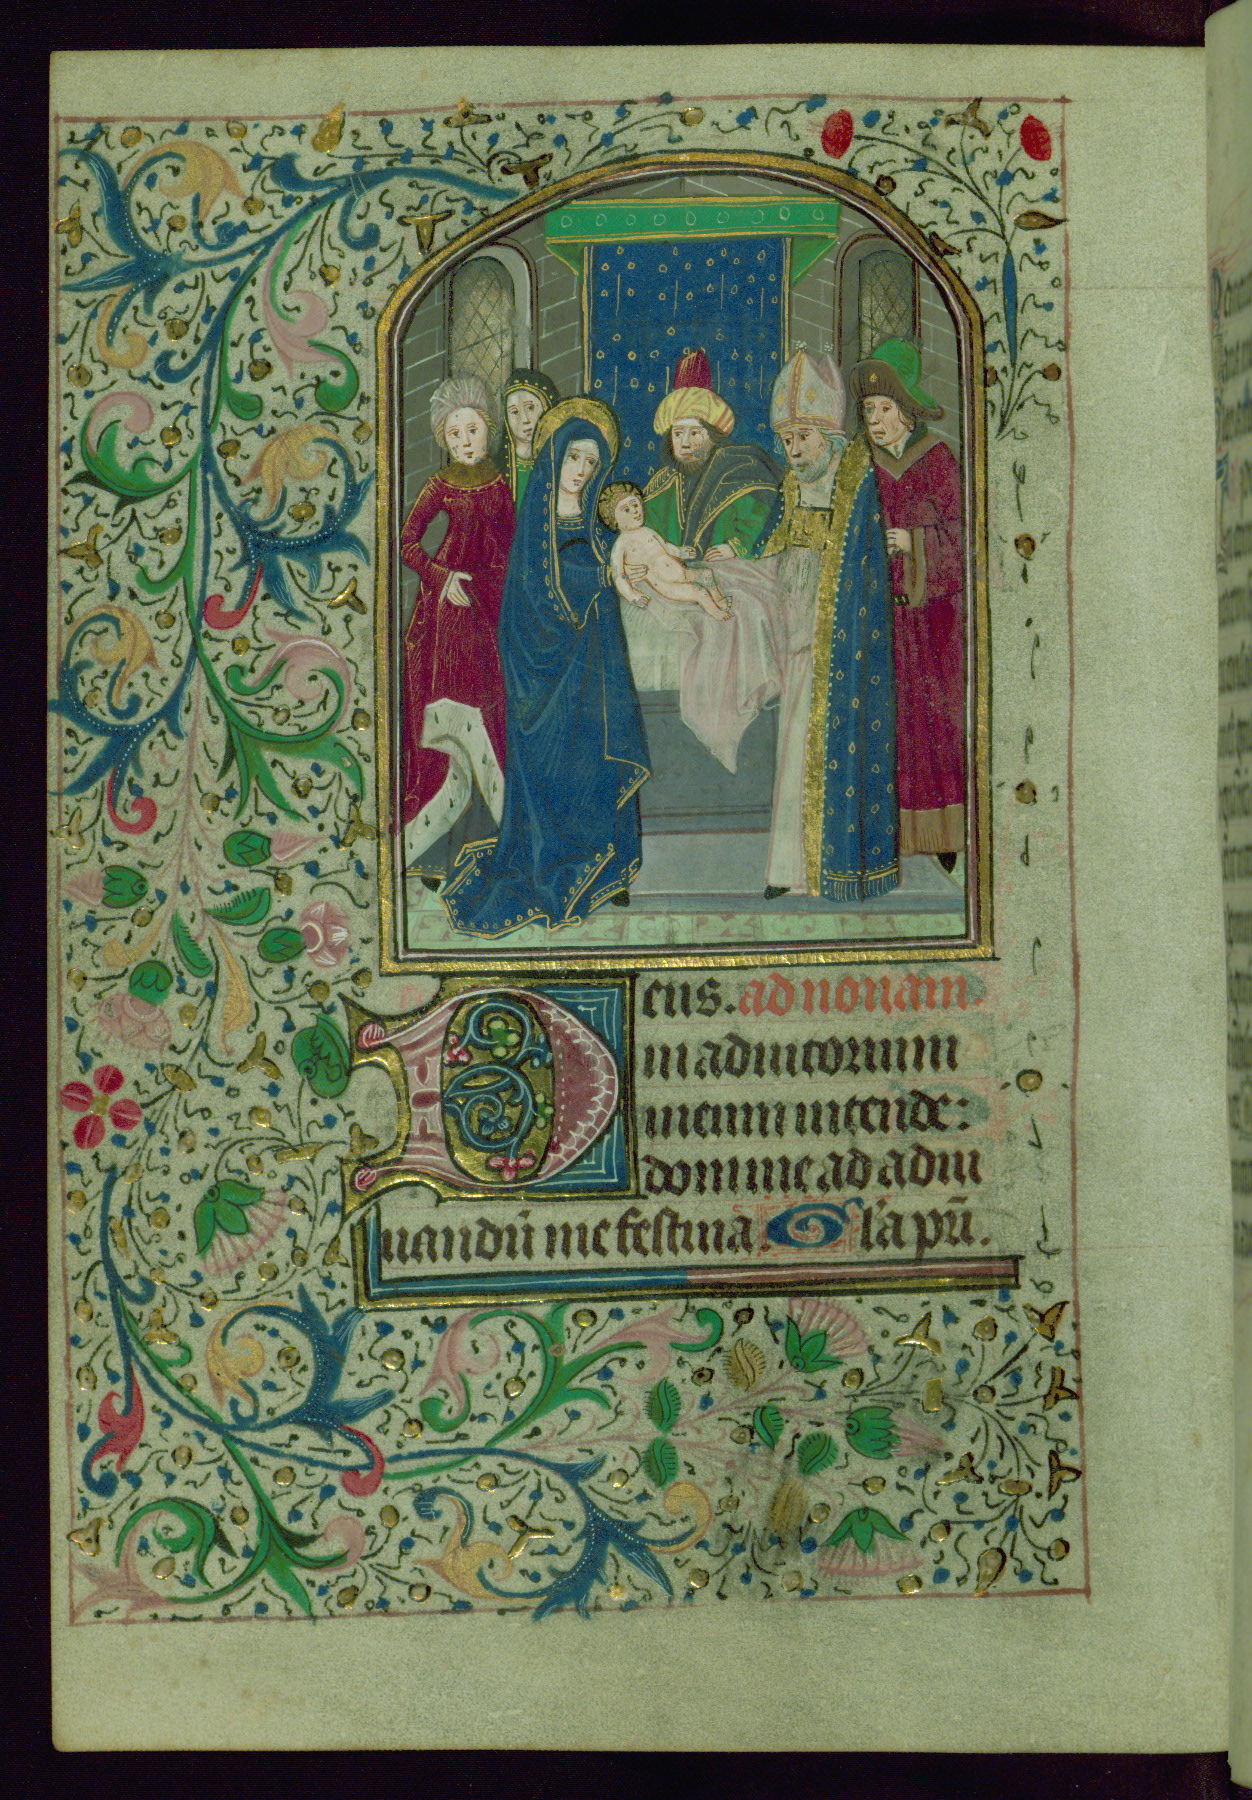 Deus. ad nonam.
in adiutorium
meum intende:
domine ad adiu
uandū me festina. Gl'a pr̄i.